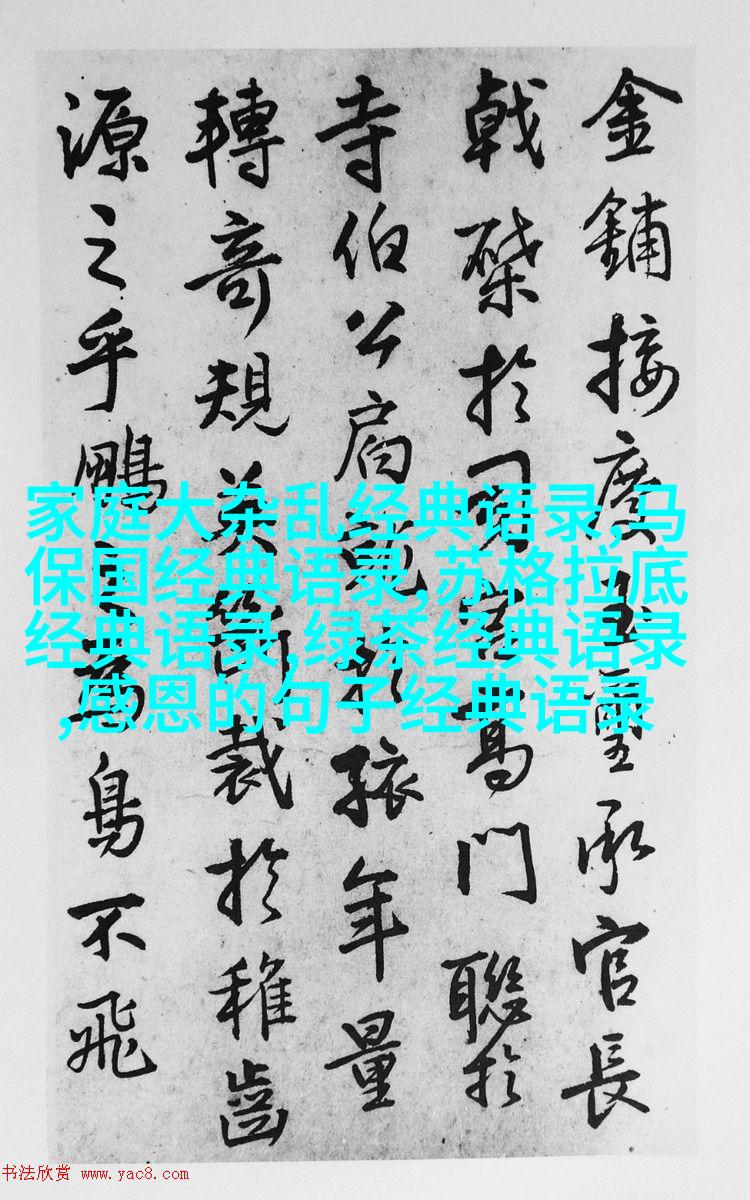 金鋪接承官長
戟於高門聯於
寺伯公於孩年量
轉奇規裁於稚齒
源之乎鵬之為鳥不飛
家庭大杂乱经典语录,马
保国经典语录,苏格拉底
经典语录,绿茶经典语录
,感恩的句子经典语录
书法欣赏 www.yac8.com